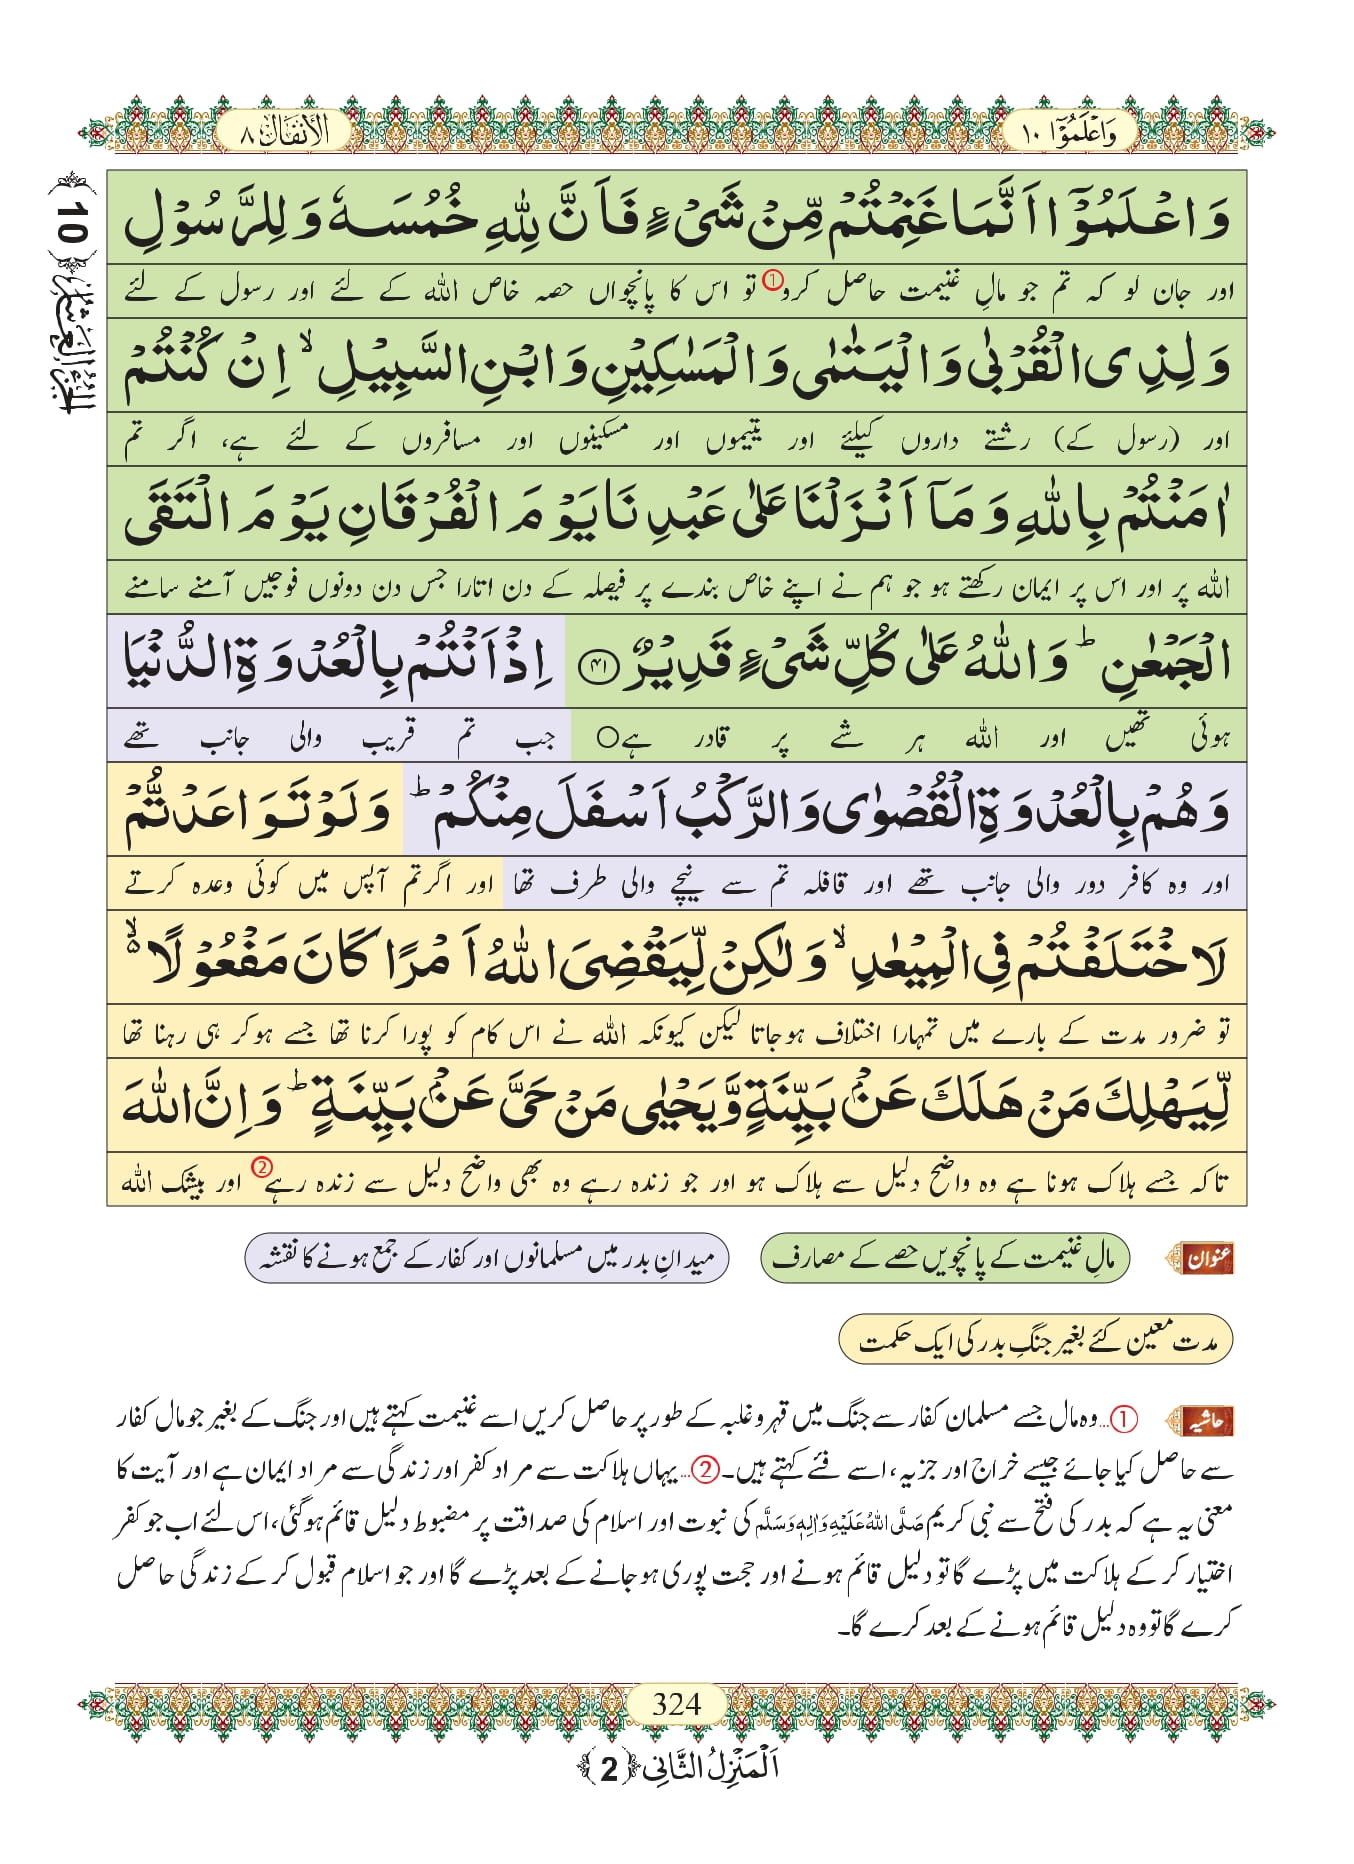 وَاعْلَمُوْۤا ۱۰
الْاَنْفَال ۸
اَلْجُزْءُ الْعَاشِرُ ﴿10﴾
وَاعْلَمُوْۤا اَنَّمَا غَنِمْتُمْ مِّنْ شَیْءٍ فَاَنَّ لِلّٰهِ خُمُسَهٗ وَ لِلرَّسُوْلِ
اور جان لو کہ تم جو مالِ غنیمت حاصل کرو① تو اس کا پانچواں حصہ خاص اللہ کے لئے اور رسول کے لئے
وَ لِذِی الْقُرْبٰى وَ الْیَتٰمٰى وَ الْمَسٰكِیْنِ وَ ابْنِ السَّبِیْلِۙ اِنْ كُنْتُمْ
اور (رسول کے) رشتے داروں کیلئے اور یتیموں اور مسکینوں اور مسافروں کے لئے ہے، اگر تم
اٰمَنْتُمْ بِاللّٰهِ وَ مَاۤ اَنْزَلْنَا عَلٰى عَبْدِنَا یَوْمَ الْفُرْقَانِ یَوْمَ الْتَقَى
اللہ پر اور اس پر ایمان رکھتے ہو جو ہم نے اپنے خاص بندے پر فیصلہ کے دن اتارا جس دن دونوں فوجیں آمنے سامنے
الْجَمْعٰنِؕ وَ اللّٰهُ عَلٰى كُلِّ شَیْءٍ قَدِیْرٌ ﴿۴۱﴾ اِذْ اَنْتُمْ بِالْعُدْوَةِ الدُّنْیَا
ہوئی تھیں اور اللہ ہر شے پر قادر ہے○ جب تم قریب والی جانب تھے
وَ هُمْ بِالْعُدْوَةِ الْقُصْوٰى وَ الرَّكْبُ اَسْفَلَ مِنْكُمْؕ وَ لَوْ تَوَاعَدْتُّمْ
اور وہ کافر دور والی جانب تھے اور قافلہ تم سے نیچے والی طرف تھا اور اگر تم آپس میں کوئی وعدہ کرتے
لَاخْتَلَفْتُمْ فِی الْمِیْعٰدِۙ وَ لٰكِنْ لِّیَقْضِیَ اللّٰهُ اَمْرًا كَانَ مَفْعُوْلًا ۙ۬
تو ضرور مدت کے بارے میں تمہارا اختلاف ہوجاتا لیکن کیونکہ اللہ نے اس کام کو پورا کرنا تھا جسے ہوکر ہی رہنا تھا
لِّیَهْلِكَ مَنْ هَلَكَ عَنْۢ بَیِّنَةٍ وَّ یَحْیٰى مَنْ حَیَّ عَنْۢ بَیِّنَةٍؕ وَ اِنَّ اللّٰهَ
تاکہ جسے ہلاک ہونا ہے وہ واضح دلیل سے ہلاک ہو اور جو زندہ رہے وہ بھی واضح دلیل سے زندہ رہے② اور بیشک اللہ
عنوان مالِ غنیمت کے پانچویں حصے کے مصارف میدانِ بدر میں مسلمانوں اور کفار کے جمع ہونے کا نقشہ
مدت معین کئے بغیر جنگِ بدر کی ایک حکمت
حاشیہ ①...وہ مال جسے مسلمان کفار سے جنگ میں قہر و غلبہ کے طور پر حاصل کریں اسے غنیمت کہتے ہیں اور جنگ کے بغیر جو مال کفار
سے حاصل کیا جائے جیسے خراج اور جزیہ، اسے فئے کہتے ہیں۔②...یہاں ہلاکت سے مراد کفر اور زندگی سے مراد ایمان ہے اور آیت کا
معنی یہ ہے کہ بدر کی فتح سے نبی کریم صَلَّی اللہُ عَلَیْہِ وَاٰلِہٖ وَسَلَّم کی نبوت اور اسلام کی صداقت پر مضبوط دلیل قائم ہوگئی، اس لئے اب جو کفر
اختیار کر کے ہلاکت میں پڑے گا تو دلیل قائم ہونے اور حجت پوری ہو جانے کے بعد پڑے گا اور جو اسلام قبول کر کے زندگی حاصل
کرے گا تو وہ دلیل قائم ہونے کے بعد کرے گا۔
324
اَلْمَنْزِلُ الثَّانِی ﴿2﴾